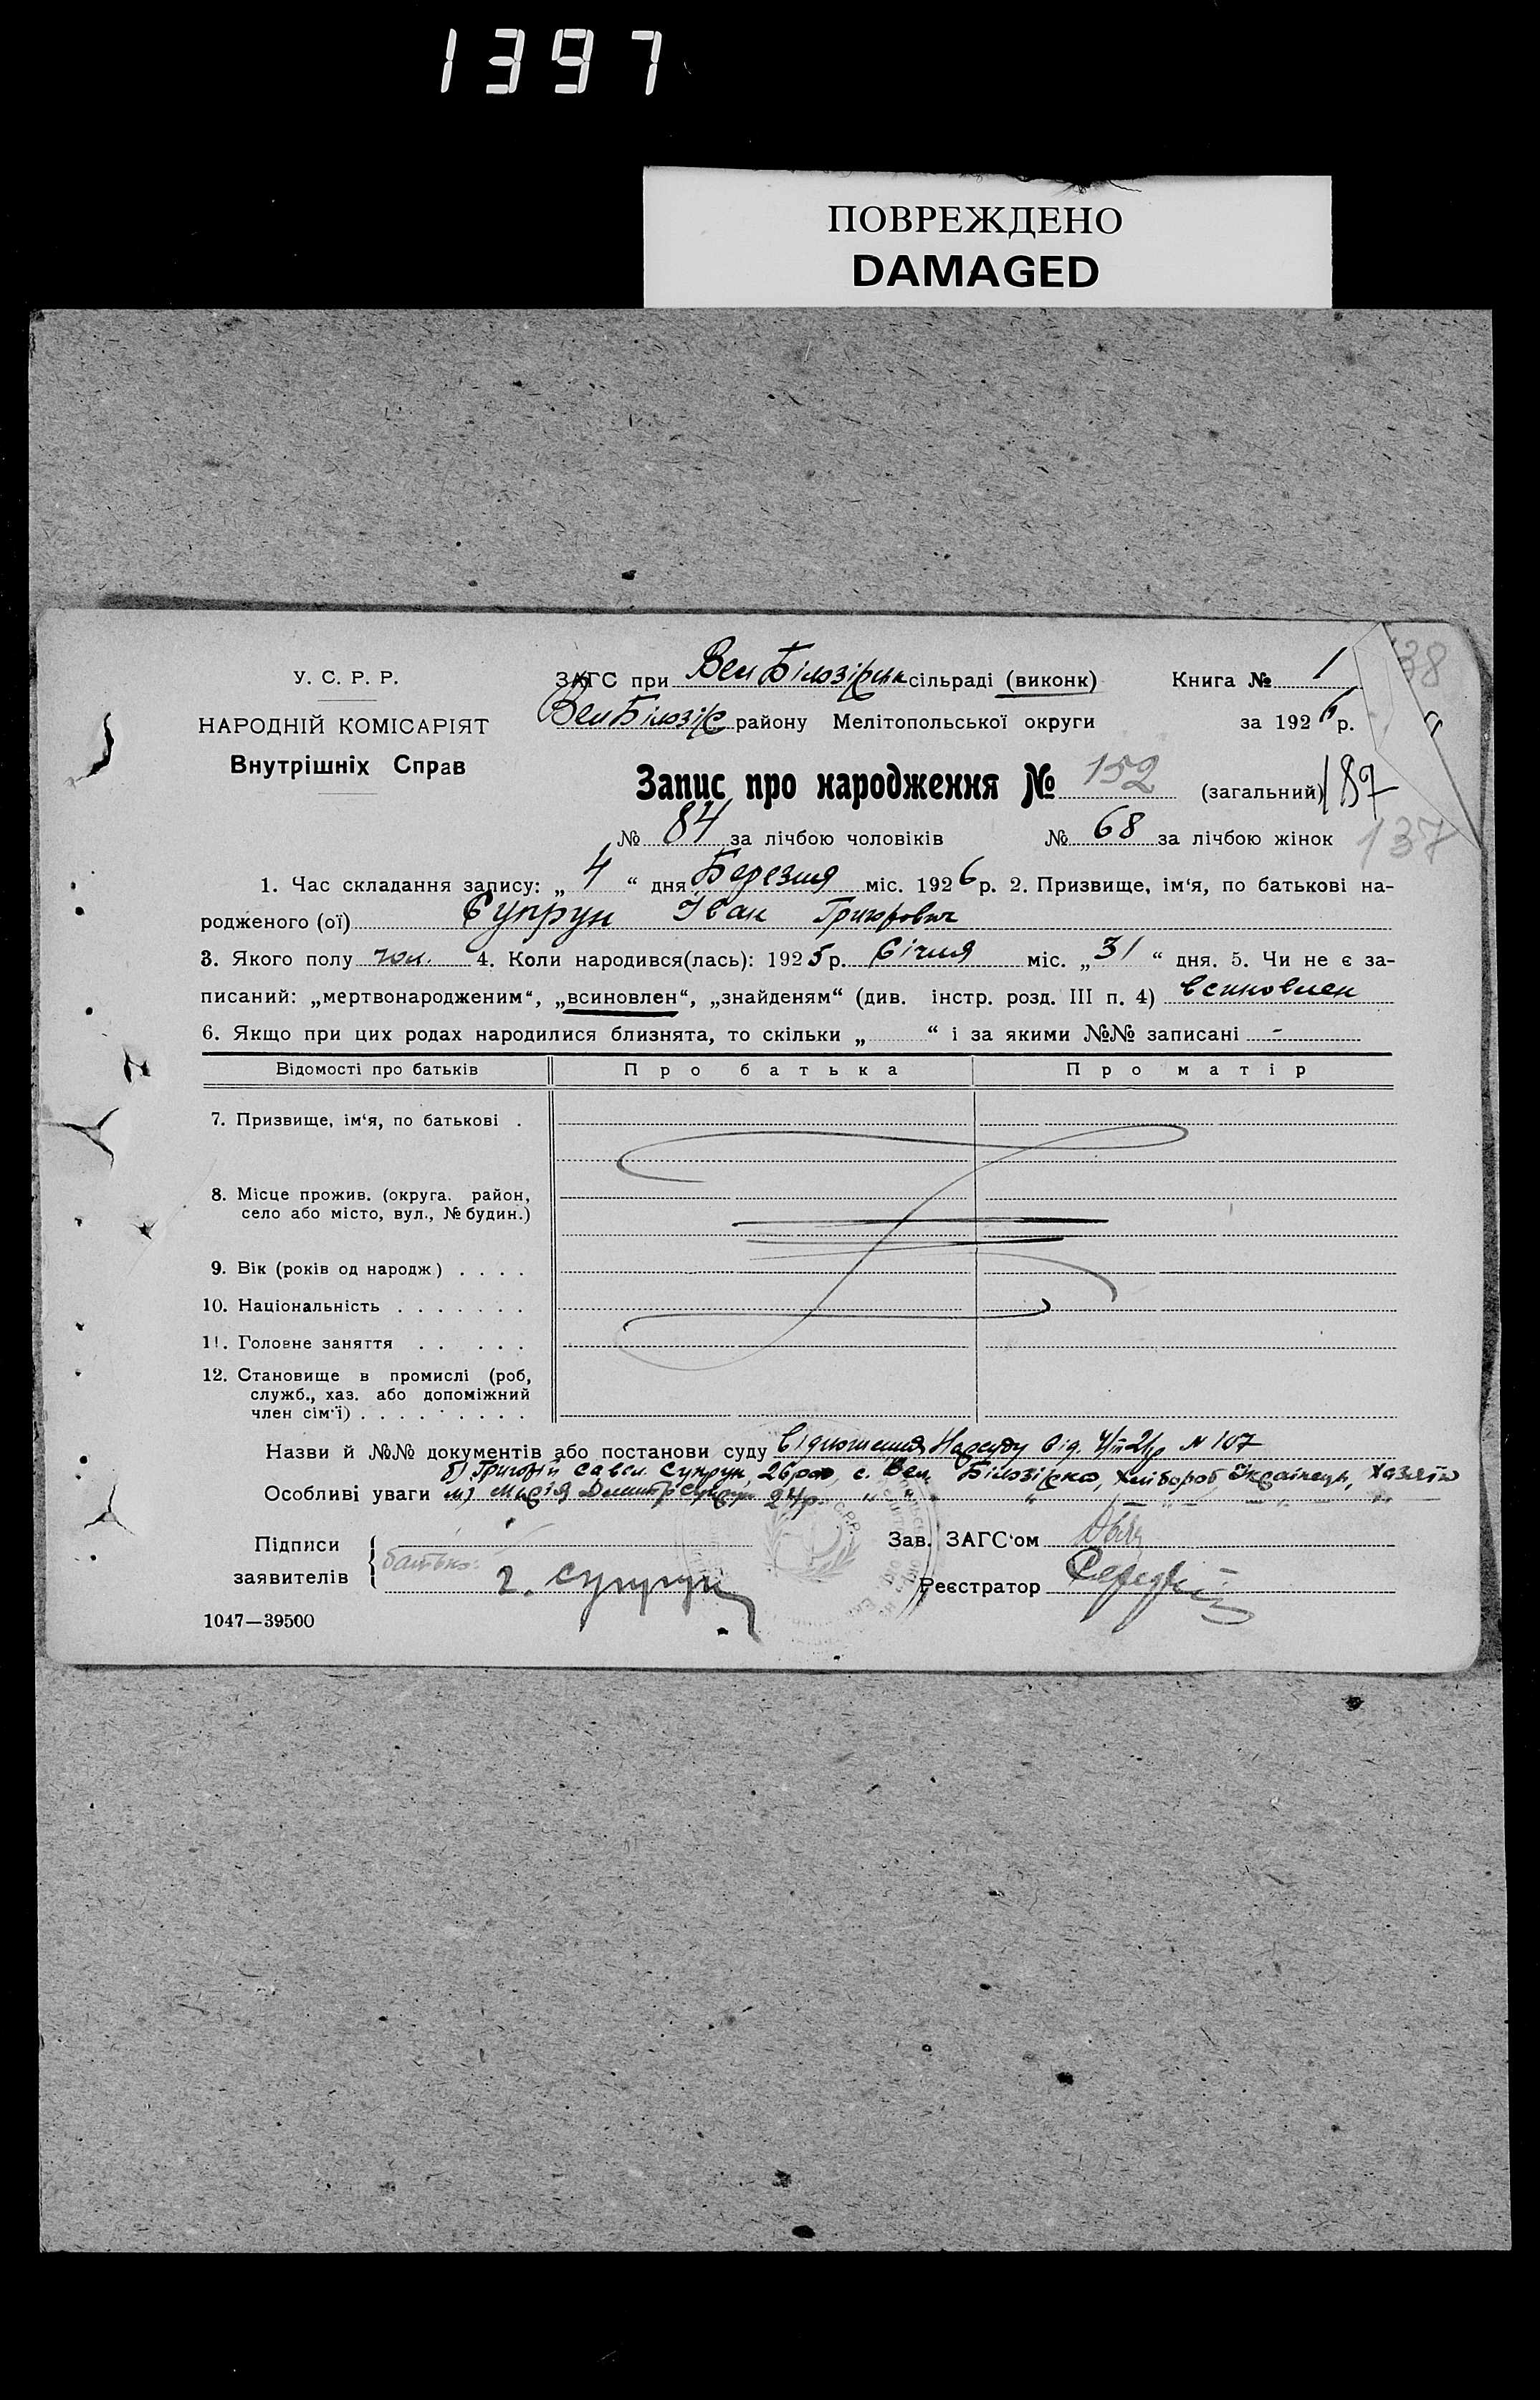 1397
ПОВРЕЖДЕНО
DAMAGED
38
У. С. Р. Р.
НАРОДНІЙ КОМІСАРІЯТ
Внутрішніх Справ
ЗАГС при Вел Білозірськ сільраді (виконк) Книга № 1
Вел Білозір району Мелітопольської округи за 1926 р.
Запис про народження № 152 (загальний) 187
№ 84 за лічбою чоловіків № 68 за лічбою жінок 137
1. Час складання запису: „ 4 “ дня Березня міс. 1926 р. 2. Призвище, ім‘я, по батькові на-
родженого (ої) Супрун Іван Григорович
3. Якого полу чол. 4. Коли народився(лась): 1925 р. Січня міс. „ 31 “ дня. 5. Чи не є за-
писаний: „мертвонародженим“, „всиновлен“, „знайденям“ (див. інстр. розд. III п. 4) всиновлен
6. Якщо при цих родах народилися близнята, то скільки „ “ і за якими №№ записані -
Відомості про батьків Про батька Про матір
7. Призвище, ім‘я, по батькові .
8. Місце прожив. (округа. район,
село або місто, вул., № будин.)
9. Вік (років од народж) . . . .
10. Національність . . . . . . .
11. Головне заняття . . . . .
12. Становище в промислі (роб,
служб., хаз. або допоміжний
член сім‘ї) . . . . . . . . .
Назви й №№ документів або постанови суду Відношення Нарсуду від № 107
б) Григорій Савел. Супрун, 26 рок, с. Вел. Білозірка, хлібороб Українець, хазяїн
Особливі уваги м) Марія Дмитр Супрун 24 р. „ „ „ „ „
Підписи
заявителів
батько:
Г. Супрун
Зав. ЗАГС‘ом
Реєстратор
1047—39500